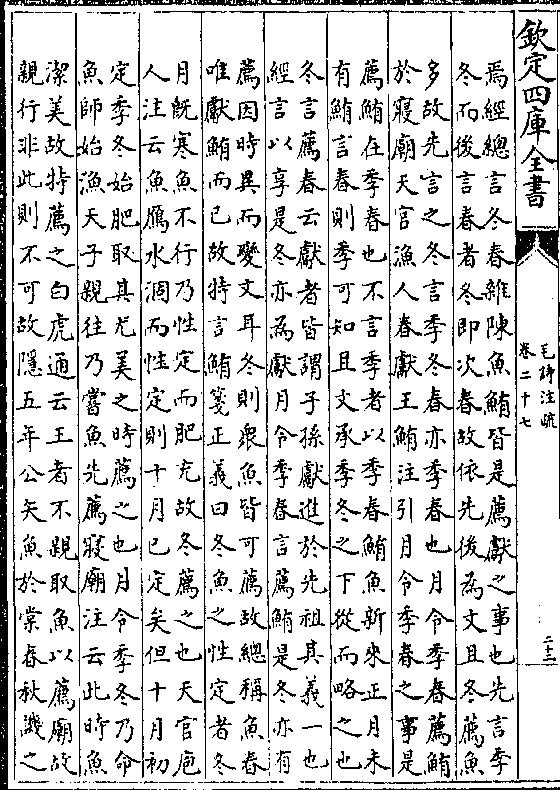 欽定四庫全書
毛詩注疏
卷二十七
二十三
焉經總言冬春雜陳魚鮪皆是薦獻之事也先言季
冬而後言春者冬即次春故依先後為文且冬薦魚
多故先言之冬言季冬春亦季春也月令季春薦鮪
於寢廟天官漁人春獻王鮪注引月令季春之事是
薦鮪在季春也不言季者以季春鮪魚新來正月未
有鮪言春則季可知且文承季冬之下從而略之也
冬言薦春云獻者皆謂子孫獻進於先祖其義一也
經言以享是冬亦為獻月令季春言薦鮪是冬亦有
薦因時異而變文耳冬則衆魚皆可薦故總稱魚春
唯獻鮪而已故特言鮪箋正義曰冬魚之性定者冬
月既寒魚不行乃性定而肥充故冬薦之也天官庖
人注云魚鴈水涸而性定則十月已定矣但十月初
定季冬始肥取其尤美之時薦之也月令季冬乃命
魚師始漁天子親往乃嘗魚先薦寢廟注云此時魚
潔美故特薦之白虎通云王者不親取魚以薦廟故
親行非此則不可故隱五年公矢魚於棠春秋譏之